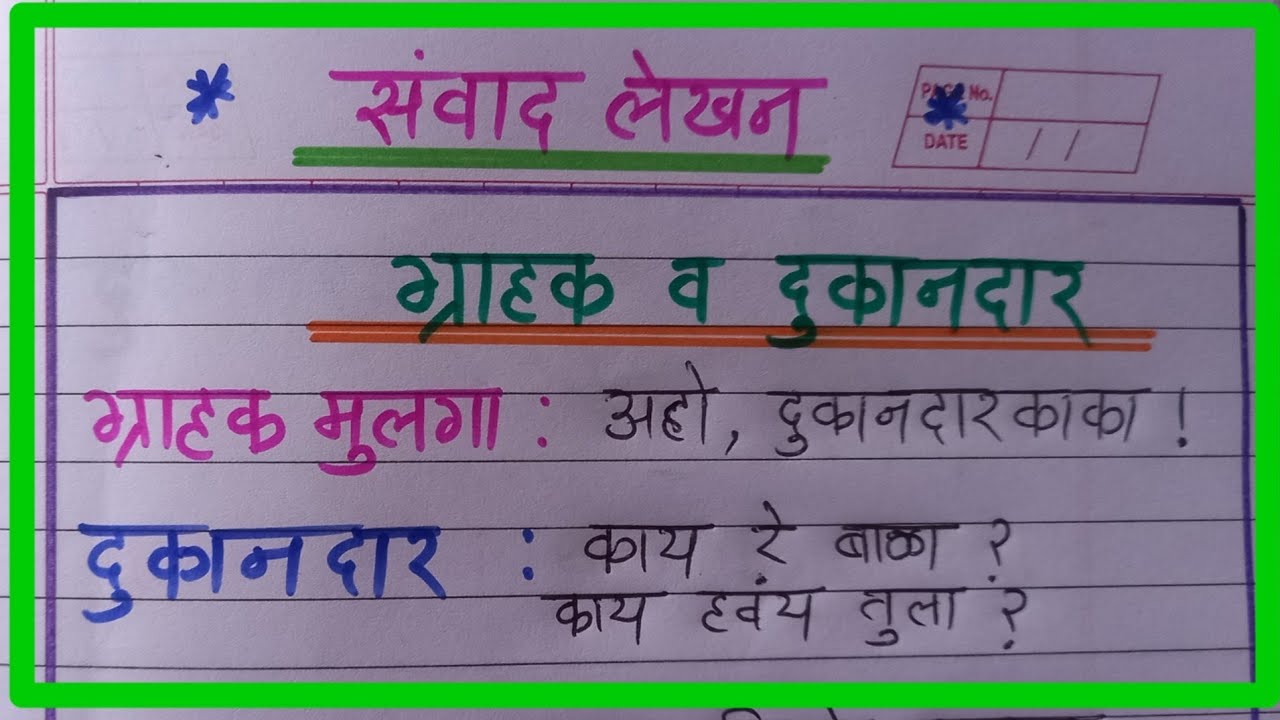 * संवाद लेखन *
PAGE No.
DATE / /
ग्राहक व दुकानदार
ग्राहक मुलगा : अहो, दुकानदारकाका !
दुकानदार : काय रे बाळा ?
काय हवंय तुला ?